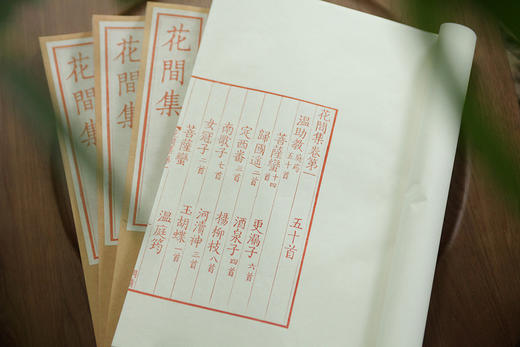 花間集
花間集
花間集
花間集卷第一 五十首
溫助教庭筠五十首
菩薩蠻十四首 更漏子六首
歸國遙二首 酒泉子四首
定西番三首 楊柳枝八首
南歌子七首 河瀆神三首
女冠子二首 玉胡蝶一首
菩薩蠻 溫庭筠